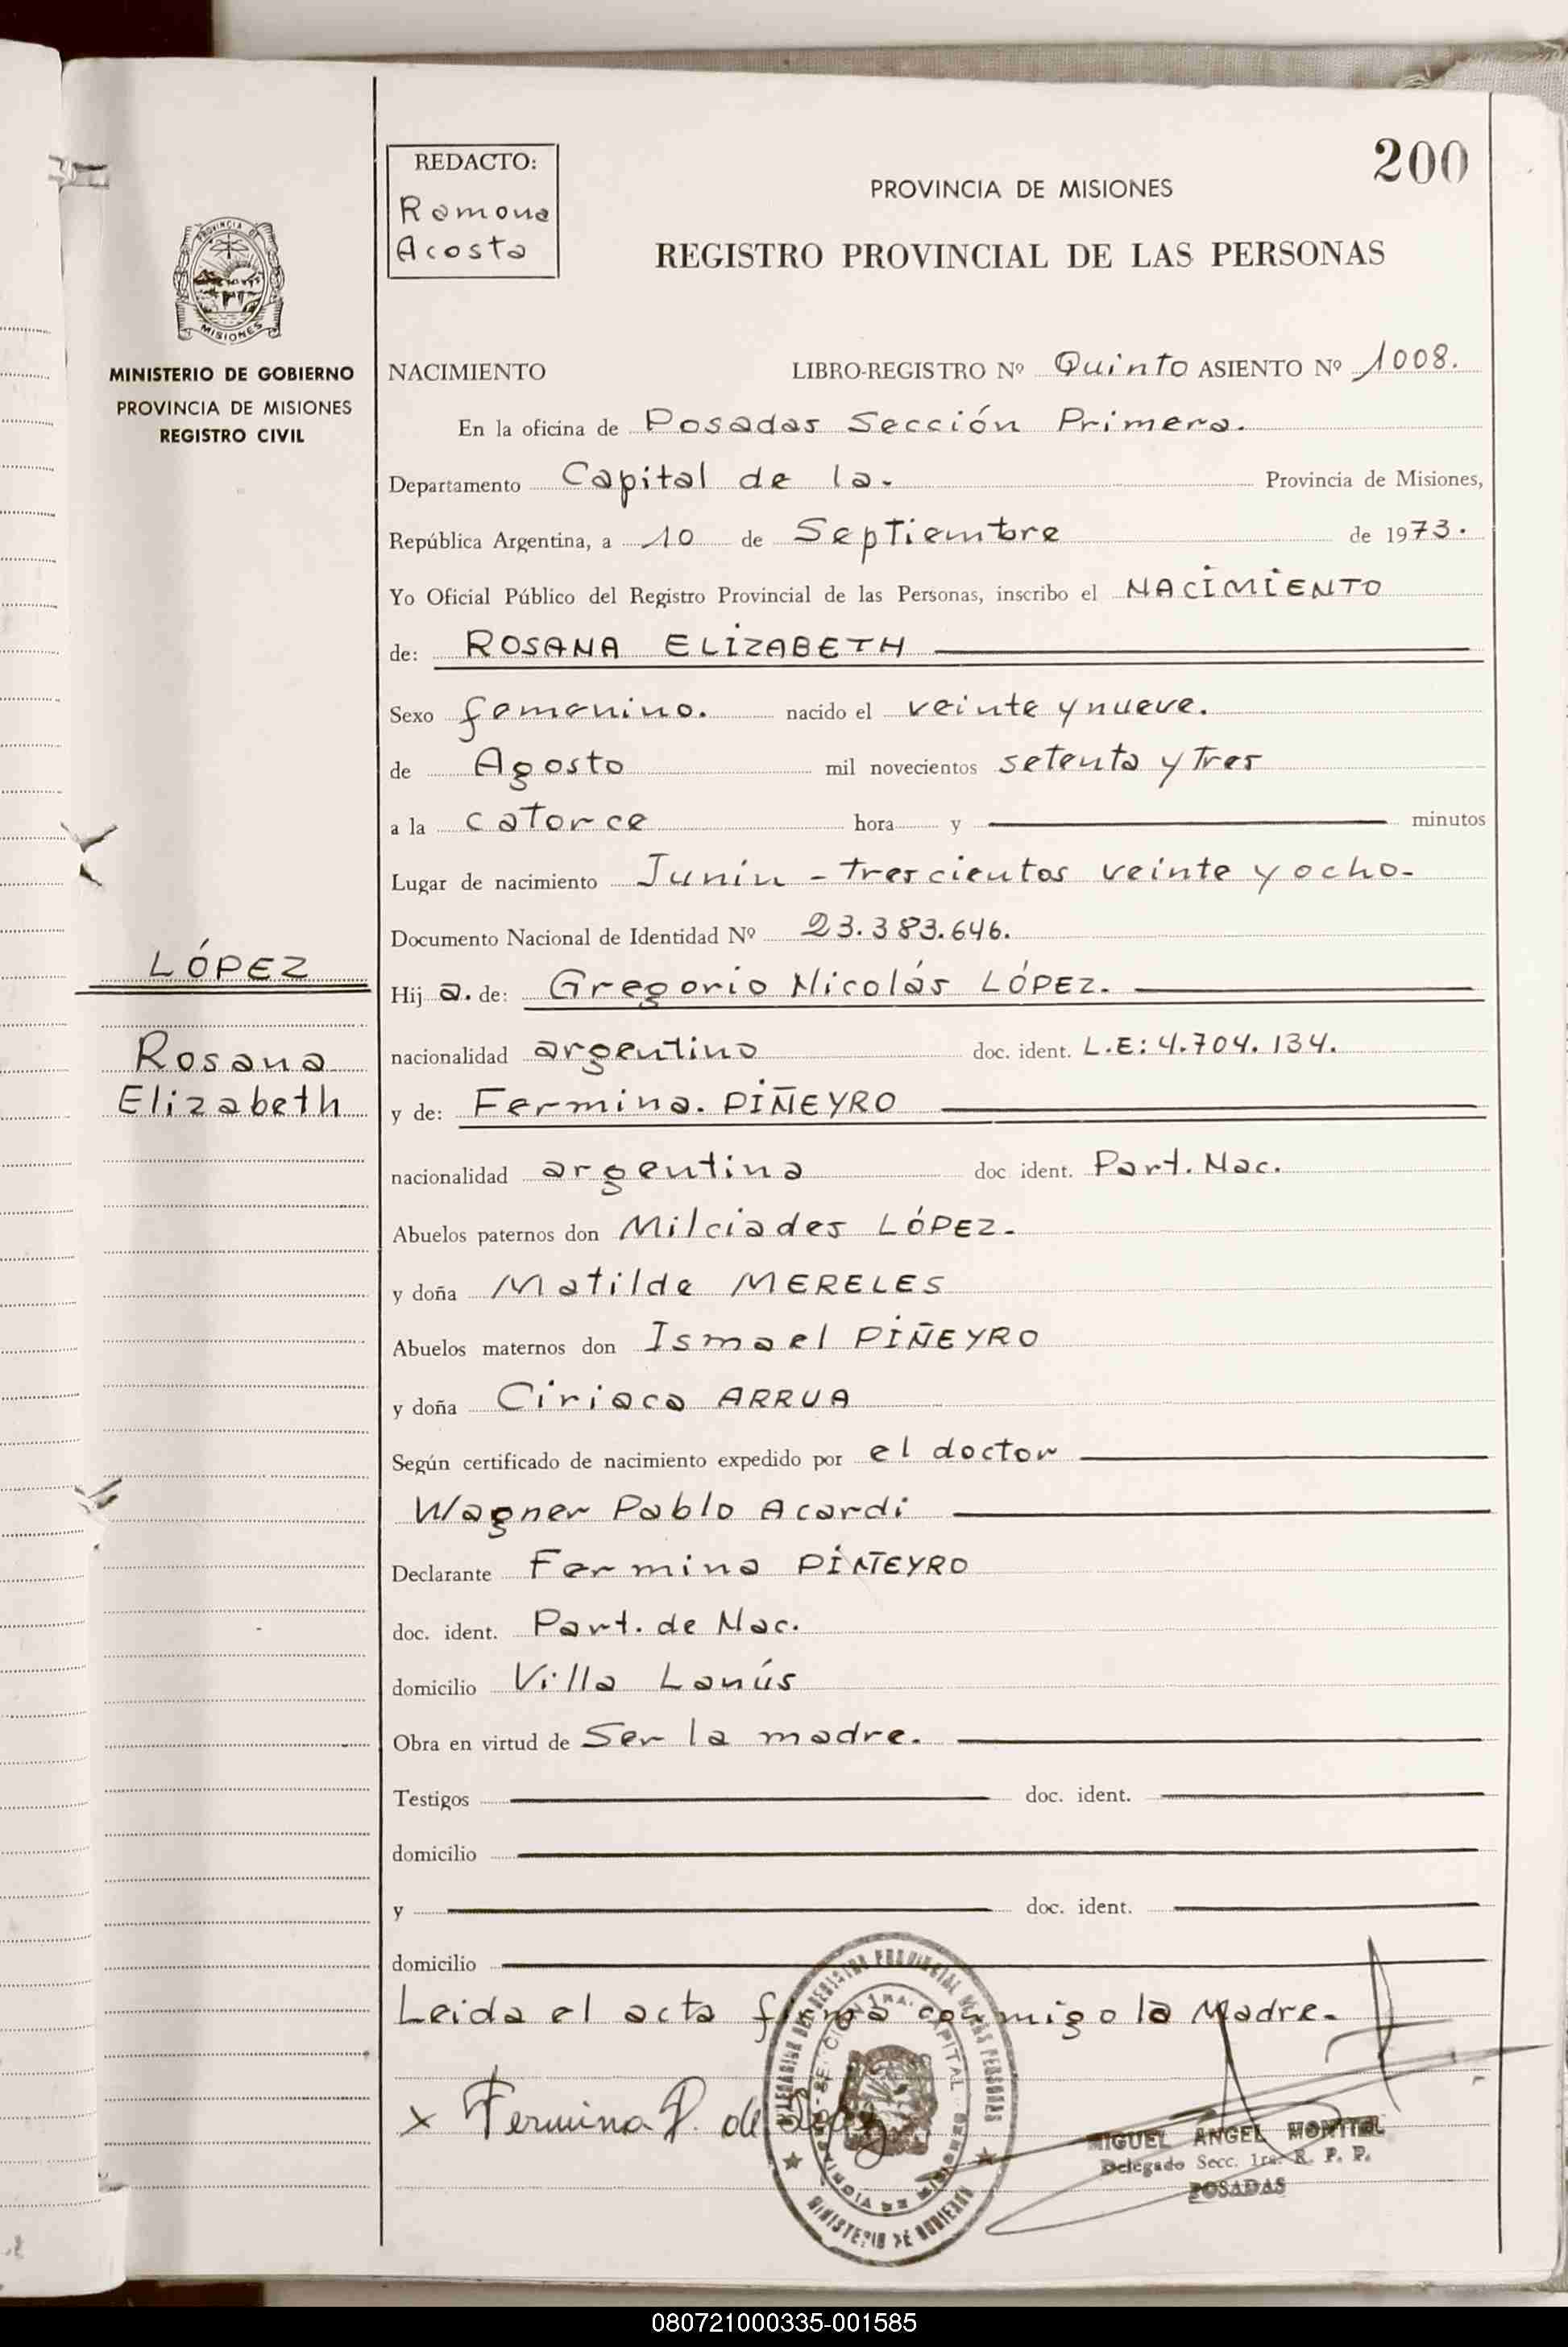 REDACTO:
Ramona
Acosta
200
PROVINCIA DE MISIONES
REGISTRO PROVINCIAL DE LAS PERSONAS
PROVINCIA DE
MISIONES
MINISTERIO DE GOBIERNO
PROVINCIA DE MISIONES
REGISTRO CIVIL
NACIMIENTO LIBRO-REGISTRO Nº Quinto ASIENTO Nº 1008.
En la oficina de Posadas Sección Primera.
Departamento Capital de la. Provincia de Misiones,
República Argentina, a 10 de Septiembre de 1973.
Yo Oficial Público del Registro Provincial de las Personas, inscribo el NACIMIENTO
de: ROSANA ELIZABETH
Sexo femenino. nacido el veinte y nueve.
de Agosto mil novecientos setenta y Tres
a la catorce hora y minutos
Lugar de nacimiento Junín - trescientos veinte y ocho-
Documento Nacional de Identidad Nº 23.383.646.
LÓPEZ
Rosana
Elizabeth
Hij a. de: Gregorio Nicolás LÓPEZ.
nacionalidad argentino doc. ident. L.E: 4.704.134.
y de: Fermina. PIÑEYRO
nacionalidad argentina doc ident. Part. Nac.
Abuelos paternos don Milciades LÓPEZ-
y doña Matilde MERELES
Abuelos maternos don Ismael PIÑEYRO
y doña Ciriaca ARRUA
Según certificado de nacimiento expedido por el doctor
Wagner Pablo Acardi
Declarante Fermina PIÑEYRO
doc. ident. Part. de Nac.
domicilio Villa Lanús
Obra en virtud de Ser la madre.
Testigos doc. ident.
domicilio
y doc. ident.
domicilio
Leida el acta firma conmigo la Madre.
x Fermina P. de López
DELEGACION DEL REGISTRO PROVINCIAL DE LAS PERSONAS
SECCION 1RA. CAPITAL
PROVINCIA DE MISIONES
MINISTERIO DE GOBIERNO
MIGUEL ANGEL MONTIEL
Delegado Secc. 1ra. R. P. P.
POSADAS
080721000335-001585